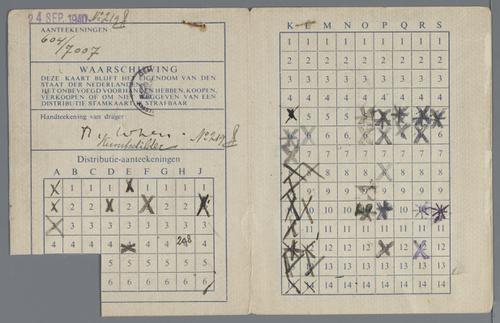 24 SEP. 1940 No 218
AANTEEKENINGEN
604/7007
WAARSCHUWING
DEZE KAART BLIJFT EIGENDOM VAN DEN
STAAT DER NEDERLANDEN
HET ONBEVOEGD VOORHANDEN HEBBEN, KOOPEN,
VERKOOPEN OF OM NIET GEVEN VAN EEN
DISTRIBUTIE STAMKAART IS STRAFBAAR
Handteekening van drager:
Cohen
Kunstschilder No 218
Distributie-aanteekeningen
A B C D E F G H J
1 1 1 1 1 1 1
2 2 2 2 2 2
3 3 3 3 3 3 3 3
4 4 4 4 4 248 4
5 5 5 5 5 5
6 6 6 6 6 6
K L M N O P Q R S
1 1 1 1 1 1 1 1 1
2 2 2 2 2 2 2 2 2
3 3 3 3 3 3 3 3 3
4 4 4 4 4 4 4 4 4
5 5 5 5
6 6 6 6
7 7 7 7 7 7 7 7
8 8 8 8 8 8 8
9 9 9 9 9 9 9
10 10 10 10
11 11 11 11 11 11 11
12 12 12 12 12
13 13 13 13 13 13 13
14 14 14 14 14 14 14